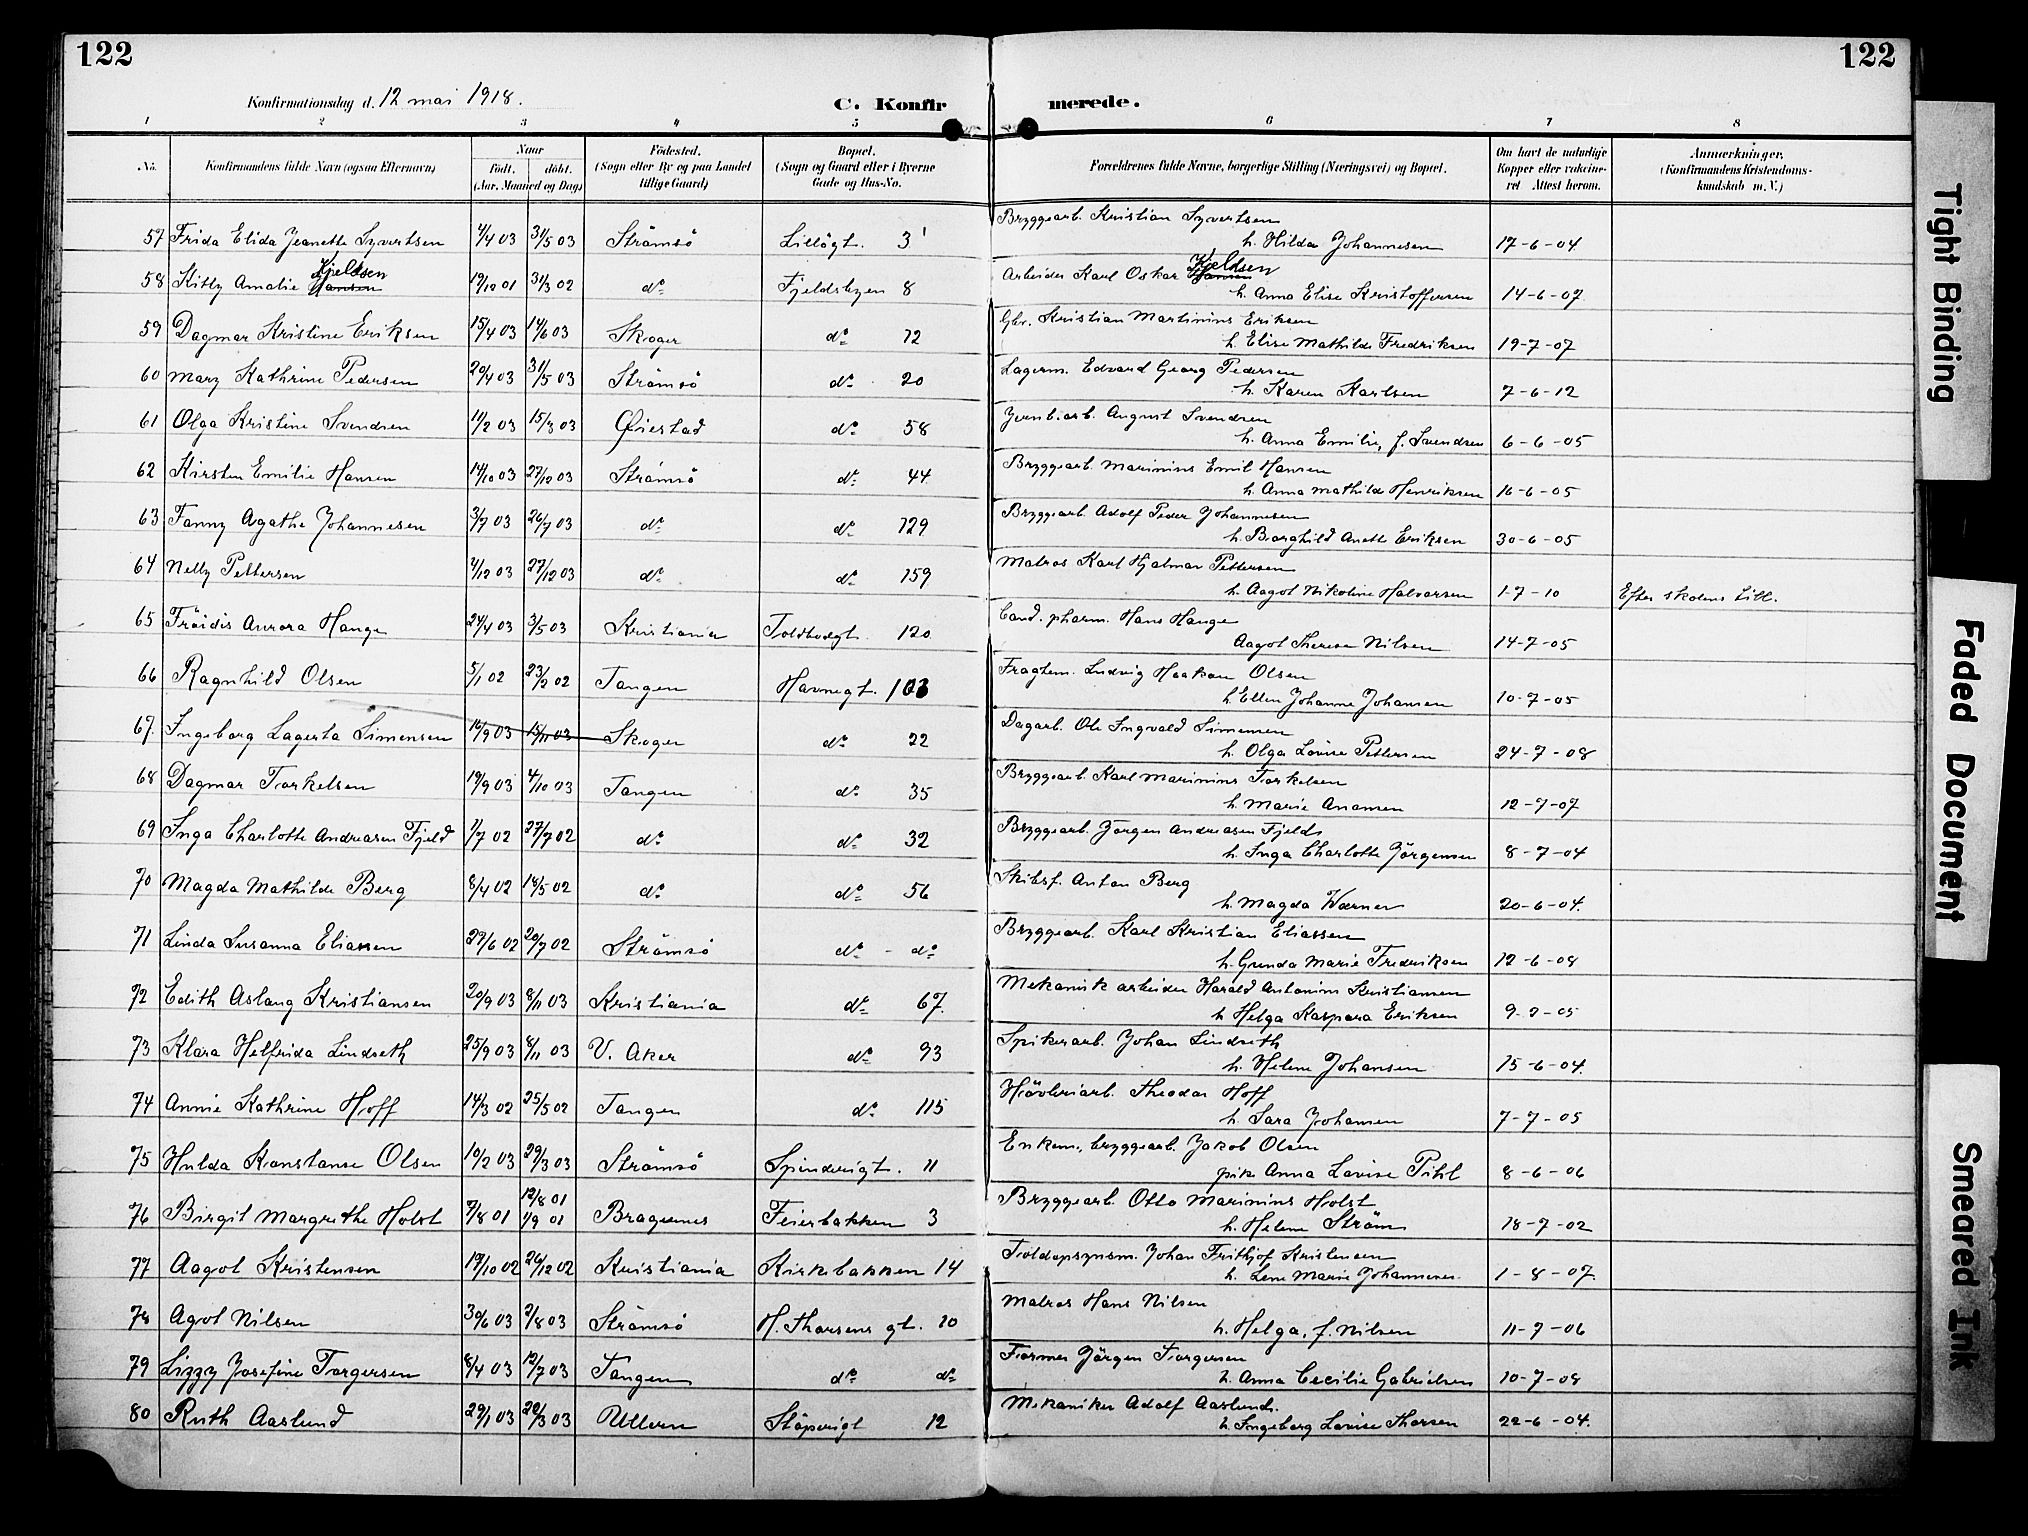 122
122
Konfirmationsdag d. 12 mai 1918.
C. Konfir merede.
1 2 3 4 5 6 7 8
No. Konfirmandens fulde Navn (ogsaa Efternavn) Naar født. døbt. (Aar, Maaned og Dag) Fødested. (Sogn eller By og paa Landet tillige Gaard) Bopæl. (Sogn og Gaard eller i Byerne Gade og Hus-No. Forældrenes fulde Navne, borgerlige Stilling (Næringsvei) og Bopæl. Om havt de naturlige Kopper eller vakcineret Attest herom. Anmærkninger. (Konfirmandens Kristendomskundskab m. V.)
57 Frida Elida Jeanette Syvertsen 4/4 03 31/5 03 Strömsö Lillögt. 3 Bryggearb. Kristian Syvertsen
h. Hilda Johannesen 17-6-04
58 Kitty Amalie Hansen Kjeldsen 19/12 01 31/3 02 do Fjeldsbyen 8 Arbeider Karl Oskar Hansen Kjeldsen
h. Anna Elise Kristoffersen 14-6-07
59 Dagmar Kristine Eriksen 15/4 03 14/6 03 Skoger do 12 Gbr. Kristian Martinius Eriksen
h. Elise Mathilde Fredriksen 19-7-07
60 Mary Kathrine Pedersen 20/4 03 31/5 03 Strömsö do 20 Lagerm. Edvard Georg Pedersen
h. Karen Karlsen 7-6-12
61 Olga Kristine Svendsen 11/2 03 15/3 03 Øiestad do 58 Jernb.arb. August Svendsen
h. Anna Emilie, f. Svendsen 6-6-05
62 Kirsten Emilie Hansen 14/10 03 27/12 03 Strömsö do 44 Bryggearb. Marinius Emil Hansen
h. Anna Mathilde Henriksen 16-6-05
63 Fanny Agathe Johannesen 3/7 03 26/7 03 do do 129 Bryggearb. Adolf Peder Johannesen
h. Borghild Anette Eriksen 30-6-05
64 Nelly Pettersen 4/12 03 27/12 03 do do 159 Matros Karl Hjalmar Pettersen
h. Aagot Nikoline Halvorsen 1-7-10 Efter skolens
65 Fröidis Aurora Hauge 24/4 03 3/5 03 Kristiania Toldbodgt. 120 Cand. pharm. Hans Hauge
Aagot Therese Nilsen 14-7-05
66 Ragnhild Olsen 5/1 02 23/2 02 Tangen Havnegt. 103 Fragtem. Ludvig Haakon Olsen
h. Ellen Johanne Johansen 10-7-05
67. Ingeborg Lagerta Simensen 16/9 03 15/11 03 Skoger do 22 Dagarb. Ole Ingvald Simensen
h. Olga Lovise Pettersen 24-7-08
68 Dagmar Torkelsen 19/9 03 4/10 03 Tangen do 35 Bryggearb. Karl Marinius Torkelsen
h. Marie Anamsen 12-7-07
69 Inga Charlotte Andreasen Fjeld 11/7 02 27/7 02 do do 32 Bryggearb. Jörgen Andreasen Fjeld
h. Inga Charlotte Jörgensen 8-7-04
70 Magda Mathilde Berg 8/4 02 18/5 02 do do 56 Skibsf. Anton Berg
h. Magda Werner 20-6-04.
71 Linda Susanna Eliassen 27/6 02 20/7 02 Strömsö do - do Bryggearb. Karl Kristian Eliassen
h. Gunda Marie Fredriksen 12-6-08
72 Edith Aslaug Kristiansen 20/9 03 8/11 03 Kristiania do 67. Mekanisk arbeider Harald Antonius Kristiansen
h Helga Kaspara Eriksen 9-7-05
73 Klara Helfrida Lindseth 25/9 03 8/11 03 V. Aker do 93 Spikerarb. Johan Lindseth
h. Helene Johansen 15-6-04.
74 Annie Kathrine Hoff 14/3 02 25/5 02 Tangen do 115 Hövleriarb. Theodor Hoff
h. Sara Johansen 7-7-05
75 Hulda Konstanse Olsen 19/2 03 29/3 03 Strömsö Spinderigt. 11 Enkem., bryggearb. Jakob Olsen
pike Anna Lovise Pihl 8-6-06
76 Birgit Margrethe Holst 7/8 01 12/8 01 1/9 01 Bragernes Feierbakken 3 Bryggearb. Otto Marinius Holst
h. Helene Ström 18-7-02
77 Aagot Kristensen 19/10 02 26/12 02 Kristiania Kirkebakken 14 Toldopsynsm. Johan Fritjof Kristensen
h. Lene Marie Johannesen 1-8-07.
78 Agot Nilsen 30/6 03 2/8 03 Strömsö H. Thorsens gt. 10 Matros Hans Nilsen
h. Helga, f. Nilsen 11-7-06
79 Lizzy Josefine Torgersen 8/4 03 12/7 03 Tangen do do Former Jörgen Torgersen
h. Anna Cecilie Gabrielsen 10-7-08
80 Ruth Aaslund 29/1 03 22/3 03 Ullern Stöperigt 12 Mekaniker Adolf Aaslund.
h. Ingeborg Lovise Thorsen 22-6-04.
Tight Binding
Faded Document
Smeared Ink